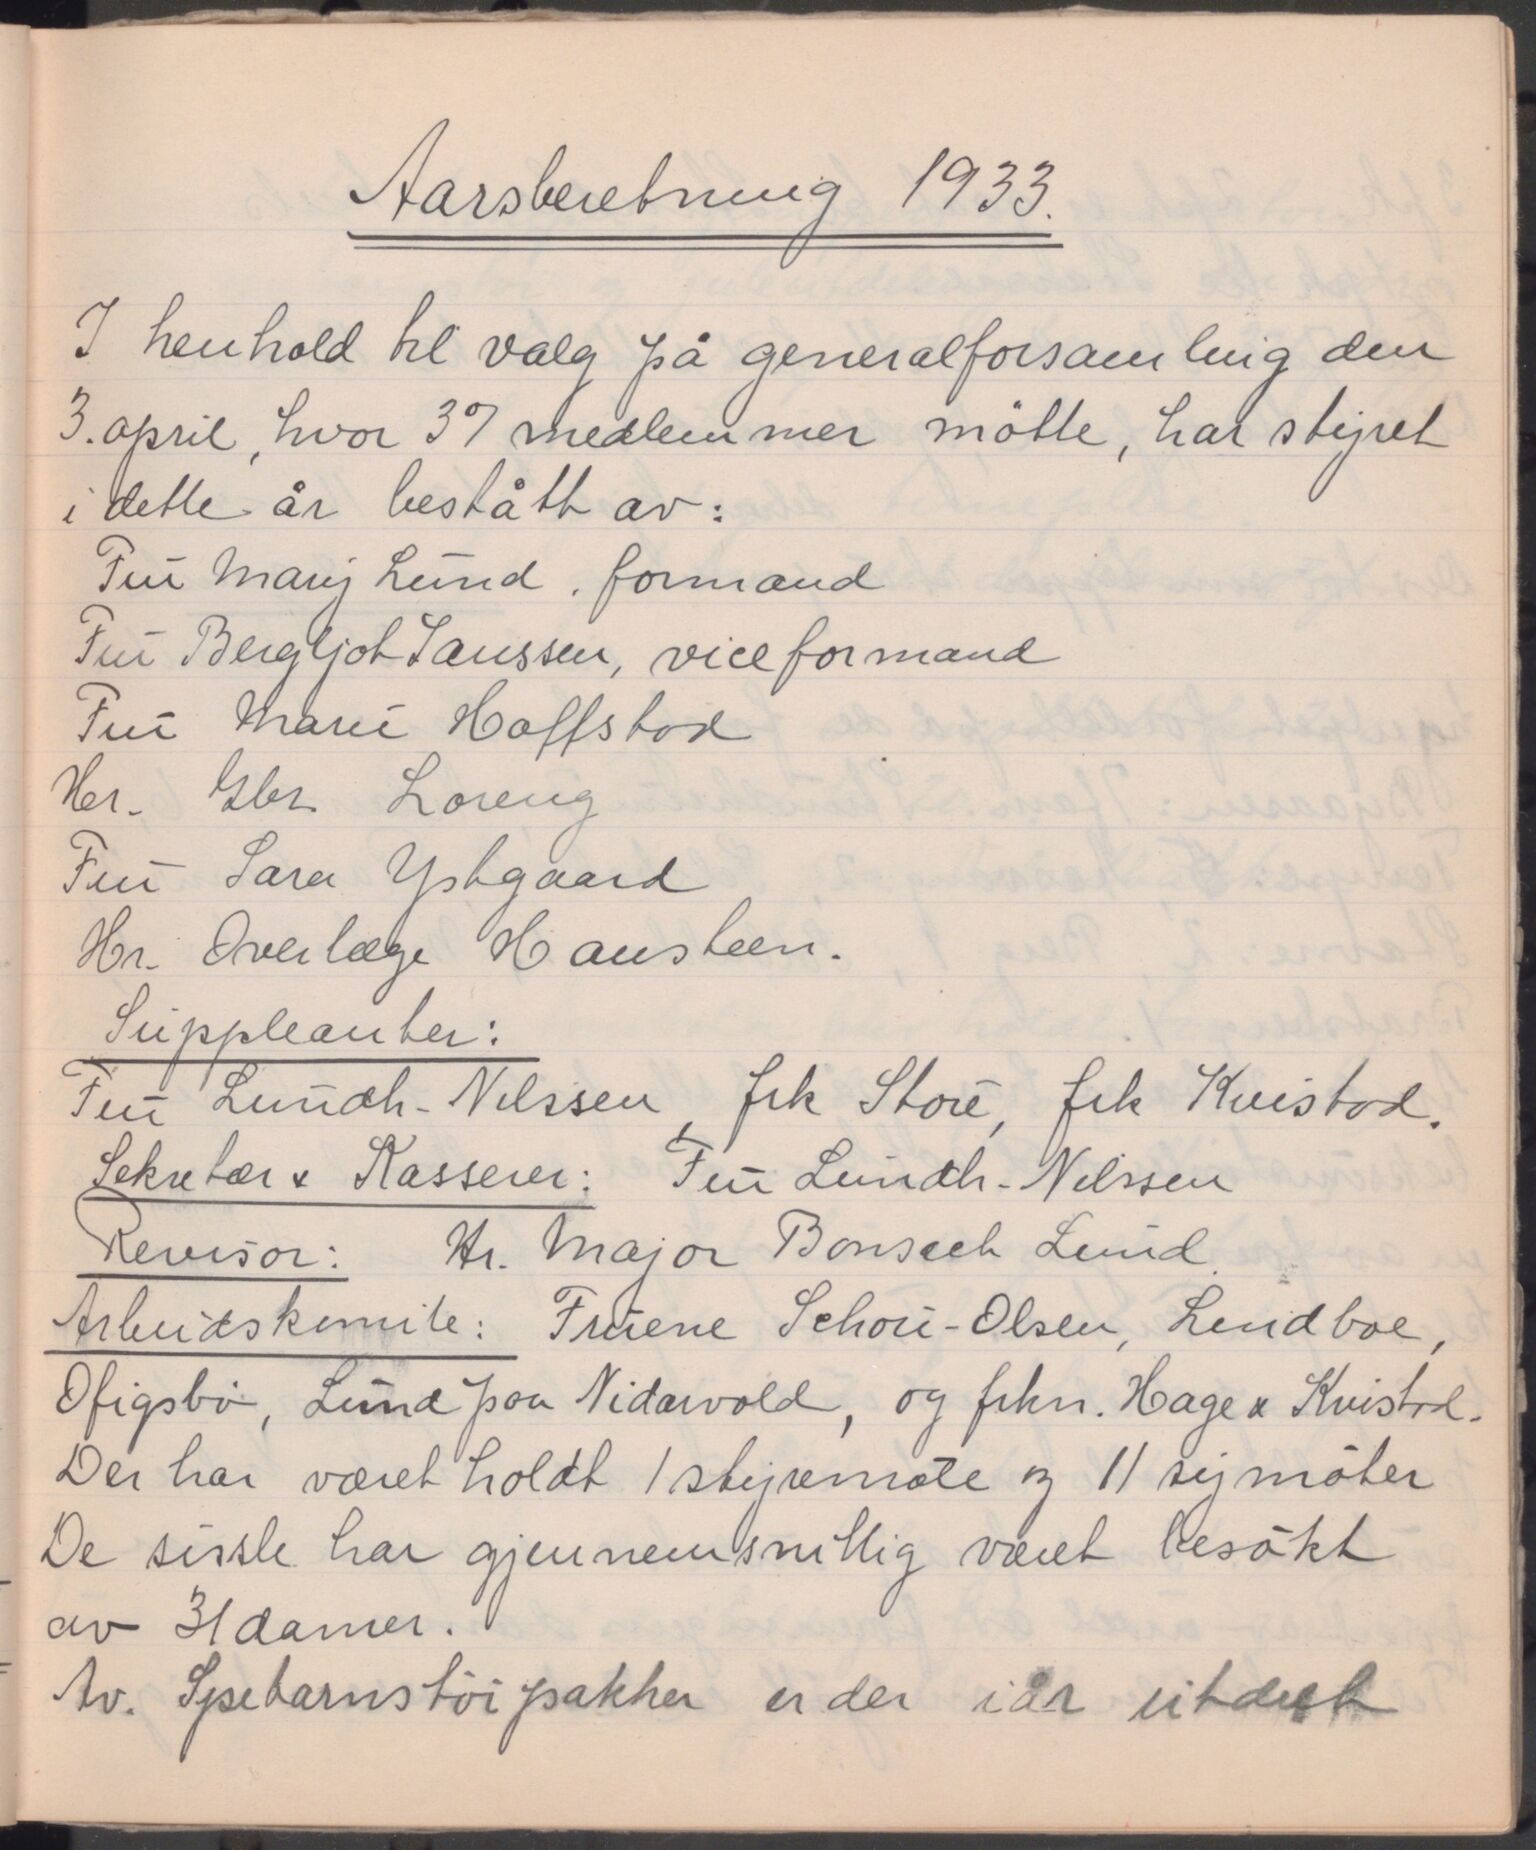 Aarsberetning 1933.
I henhold til valg på generalforsamling den
3. april, hvor 37 medlemmer møtte, har styret
i dette år bestått av:
Fru Mary Lund. formand
Fru Bergljot Janssen, viceformand
Fru Marie Hoffstad
Hr. Gbr. Loreng
Fru Sara Ystgaard
Hr. Overlæge Hansteen.
Suppleanter:
Fru Lundh-Nilssen, frk Store, frk Kvistad.
Sekretær & Kasserer: Fru Lundh-Nilssen
Revisor: Hr. Major Bonsach Lund.
Arbeidskomite: Fruene Schou-Olsen, Lundboe,
Ofigsbø, Lund paa Nidarvold, og frkn. Hage & Kvistad.
Der har været holdt 1 styremøte og 11 symøter
De sisste har gjennemsnittlig været besøkt
av 31 damer.
Av. Spebarnstøipakker er der iår utdelt